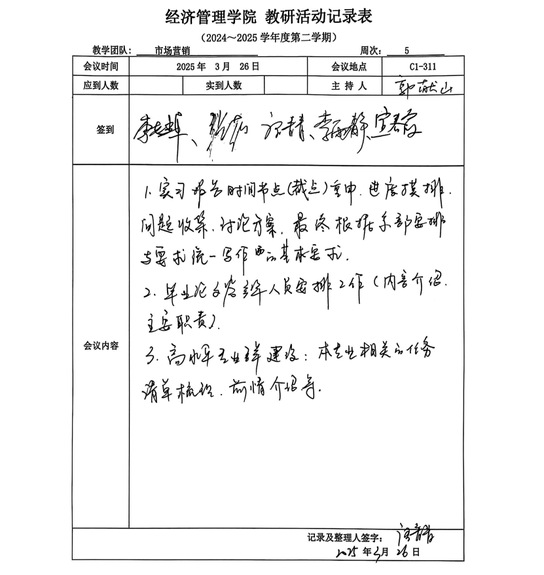 经济管理学院 教研活动记录表
（2024～2025 学年度第二学期）
教学团队： 市场营销 周次： 5
会议时间 2025 年 3 月 26 日 会议地点 C1-311
应到人数 实到人数 主 持 人 郭献山
签到
会议内容
1. 实习报告时间节点(截点)集中, 进度摸排,
问题收集, 讨论方案, 最终根据系部安排
与要求统一写作的基本要求.
2. 毕业论文答辩人员安排工作 (内容介绍,
主要职责).
3. 高水平专业群建设: 本专业相关的任务
清单梳理, 前情介绍等.
记录及整理人签字：
2025 年 3 月 26 日